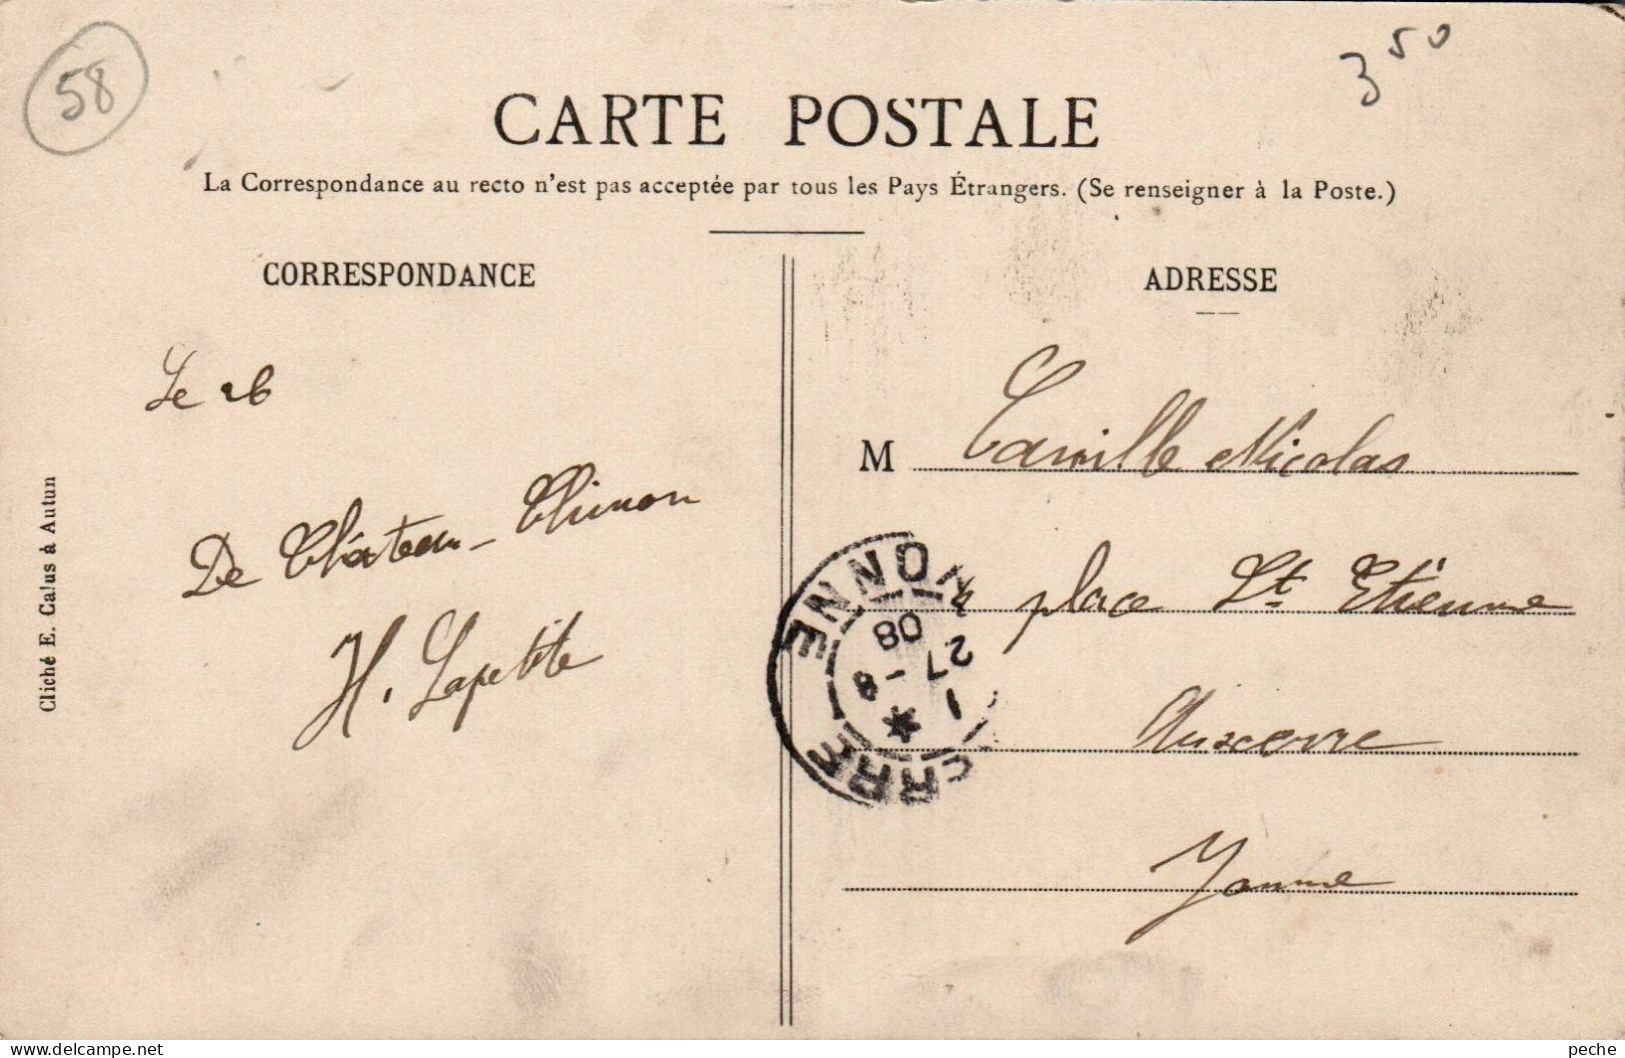 58
3 50
CARTE POSTALE
La Correspondance au recto n'est pas acceptée par tous les Pays Étrangers. (Se renseigner à la Poste.)
CORRESPONDANCE
Le 26
De Château-Chinon
H. Lapetite
Cliché E. Calus à Autun
ADRESSE
M Camille Nicolas
4 place St Etienne
Auxerre
Yonne
YONNE
08
27 - 8
1
*
ERRE
peche